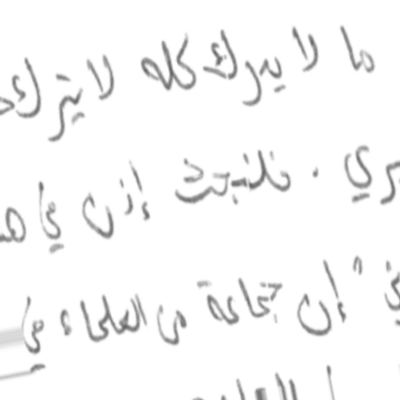 ما لا يدرك كله لا يترك
. فلنبحث إذن في
إن جماعة من العلماء في